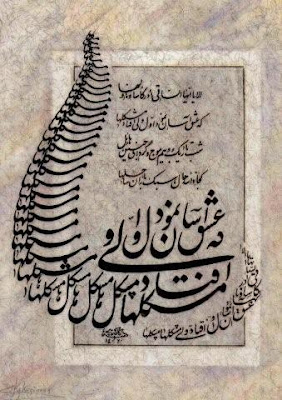 الا یا ایها الساقی ادر کاسا و ناولها
که عشق آسان نمود اول ولی افتاد مشکلها
شب تاریک و بیم موج و گردابی چنین هایل
کجا دانند حال ما سبکباران ساحلها
که عشق آسان نمود اول
ولی افتاد
مشکلها مشکلها مشکلها مشکلها مشکلها